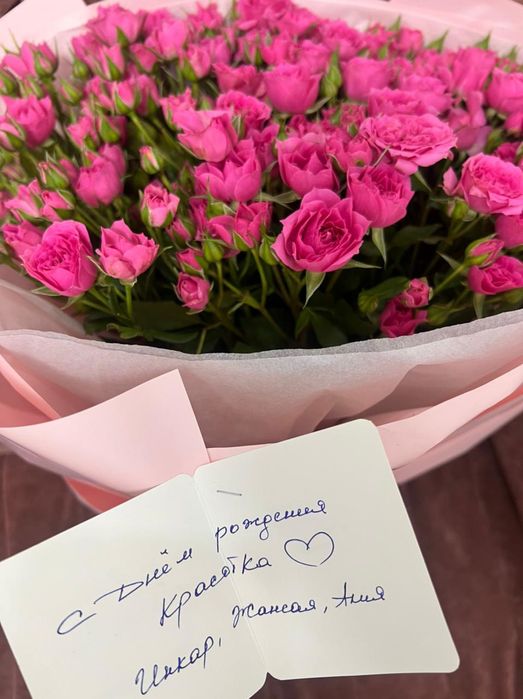 С Днём рождения
Красотка ♡
Инкар, Жансая, Алия